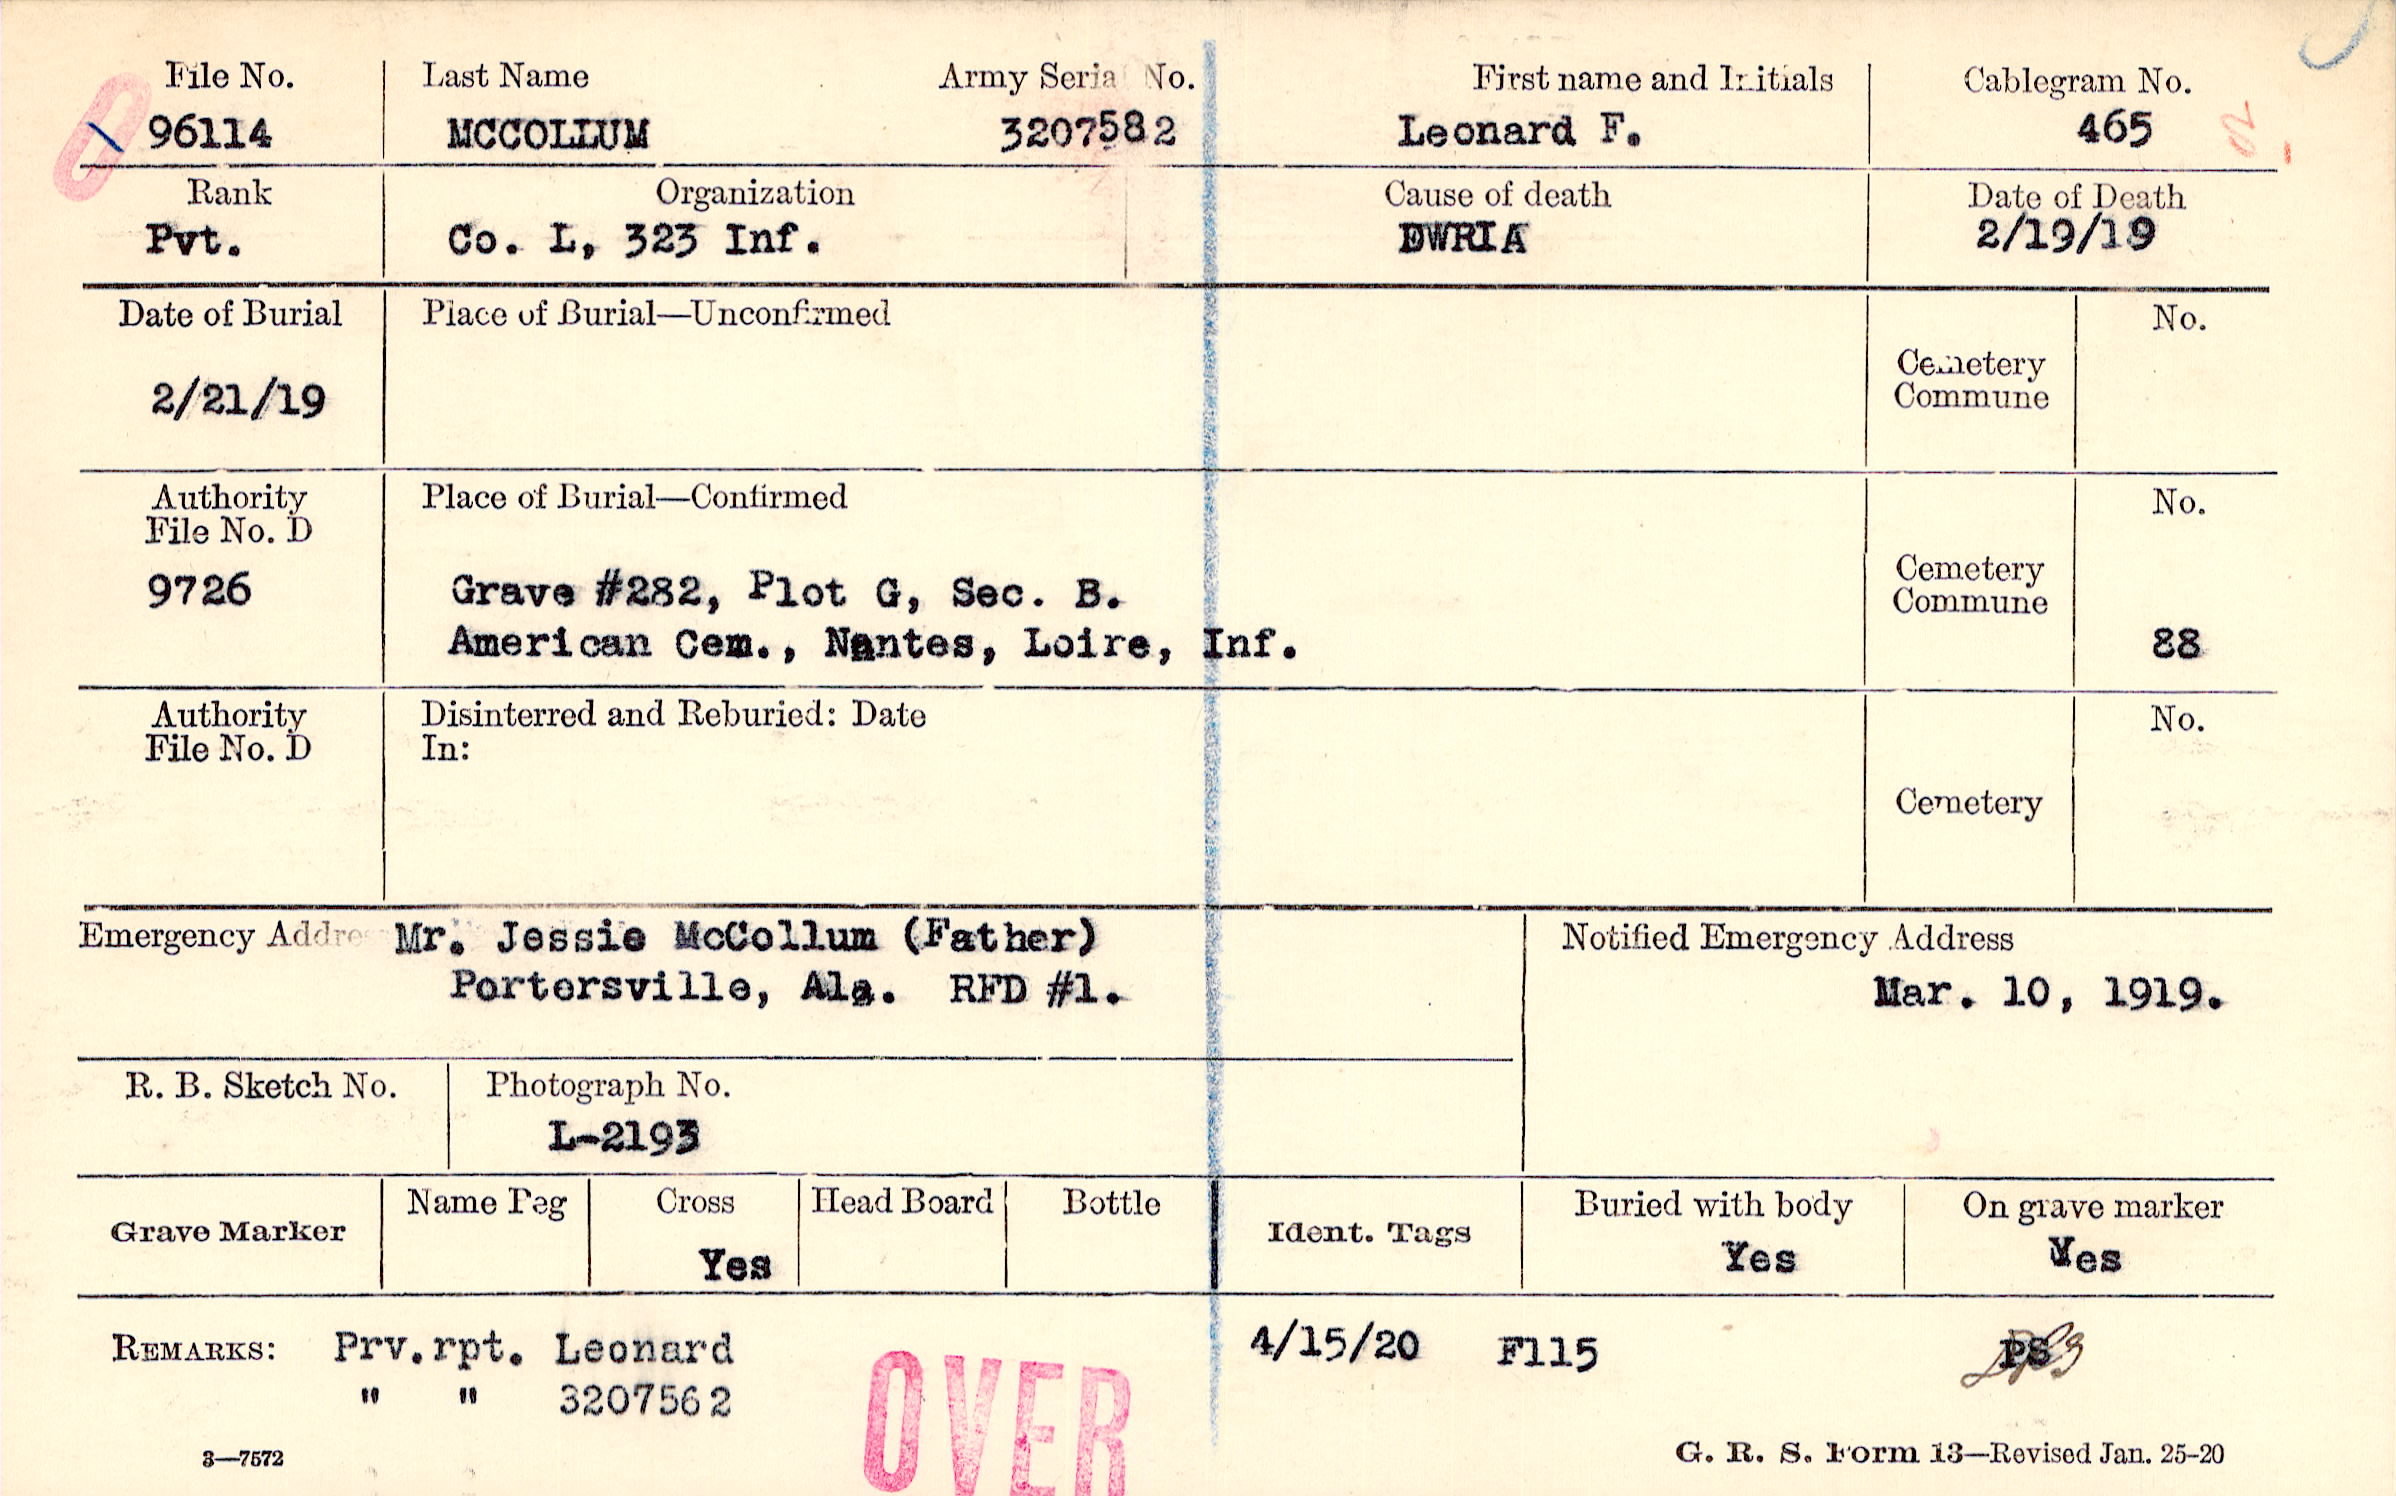 File No. Last Name Army Serial No. First name and Initials Cablegram No.
96114 MCCOLLUM 3207582 Leonard F. 465
Rank Organization Cause of death Date of Death
Pvt. Co. L, 323 Inf. DWRIA 2/19/19
Date of Burial Place of Burial—Unconfirmed No.
Cemetery
Commune
2/21/19
Authority Place of Burial—Confirmed No.
File No. D
Cemetery
Commune
9726 Grave #282, Plot G, Sec. B.
American Cem., Nantes, Loire, Inf. 88
Authority Disinterred and Reburied: Date No.
File No. D In:
Cemetery
Emergency Address Mr. Jessie McCollum (Father) Notified Emergency Address
Portersville, Ala. RFD #1. Mar. 10, 1919.
R. B. Sketch No. Photograph No.
L-2193
Grave Marker Name Peg Cross Head Board Bottle Ident. Tags Buried with body On grave marker
Yes Yes Yes
REMARKS: Prv.rpt. Leonard 4/15/20 F115 PS
" " 3207562
OVER
3—7572 G. R. S. Form 13—Revised Jan. 25-20